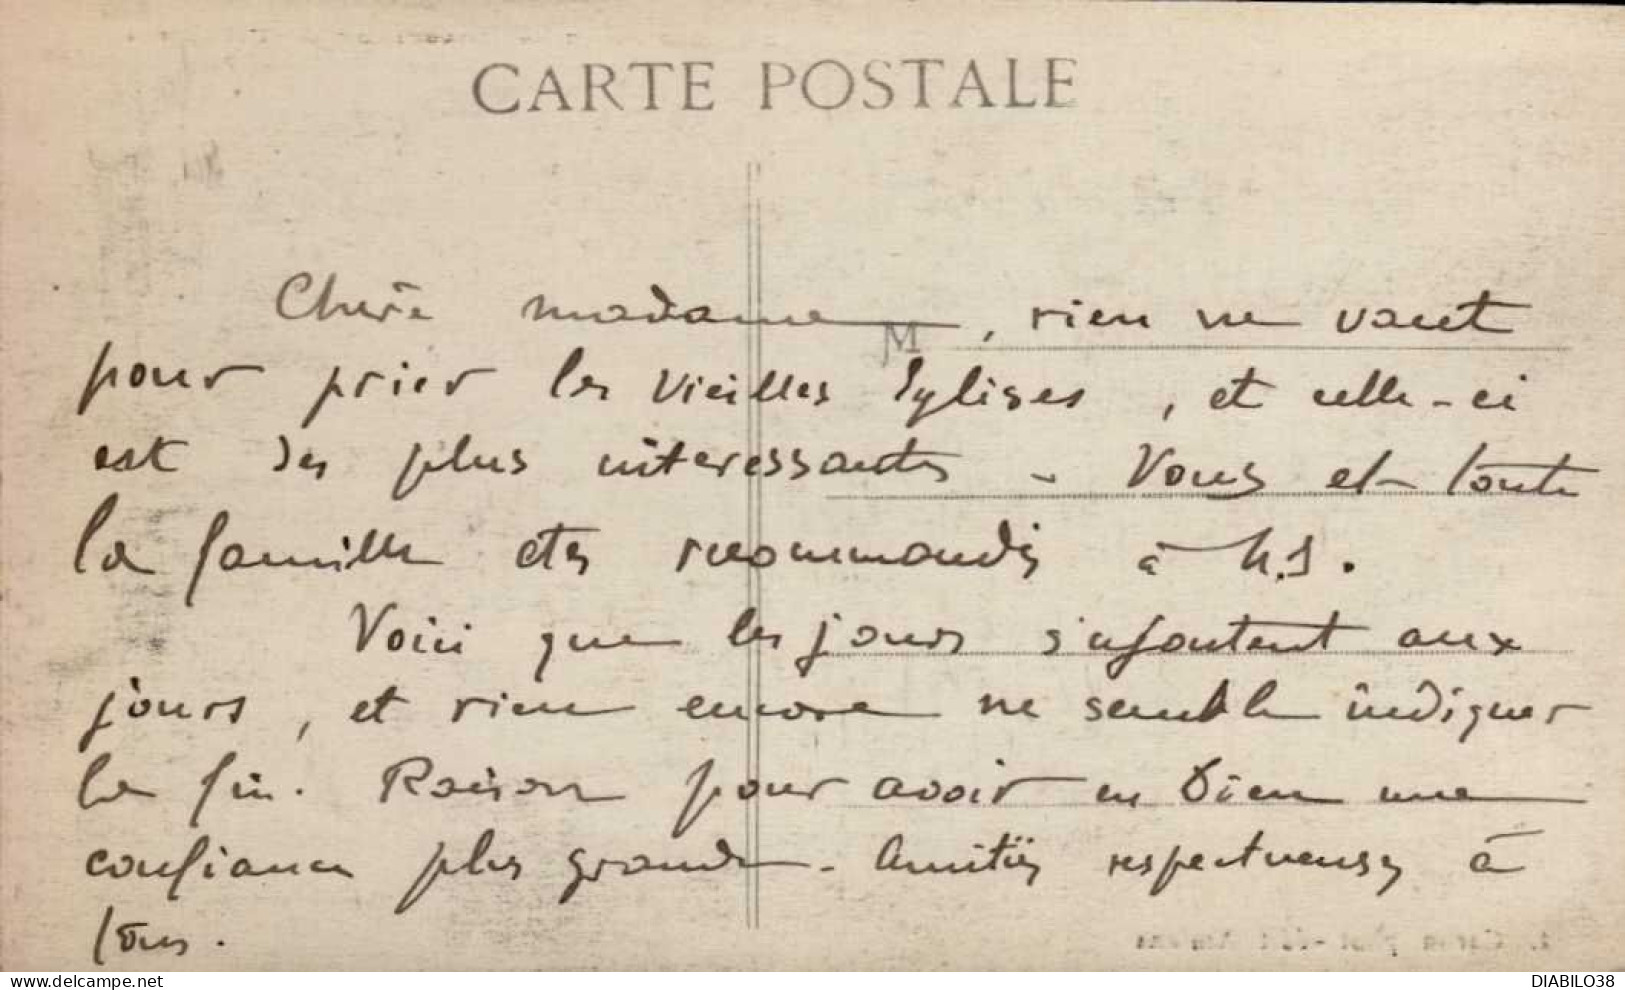 CARTE POSTALE
Chère madame, rien ne vaut
M
pour prier les vieilles Eglises, et celle-ci
est des plus intéressantes - Vous et toute
la famille êtes recommandés à N.S.
Voici que les jours s'ajoutent aux
jours, et rien encore ne semble indiquer
la fin. Raison pour avoir en Dieu une
confiance plus grande - Amitiés respectueuses à
tous.
DIABILO38